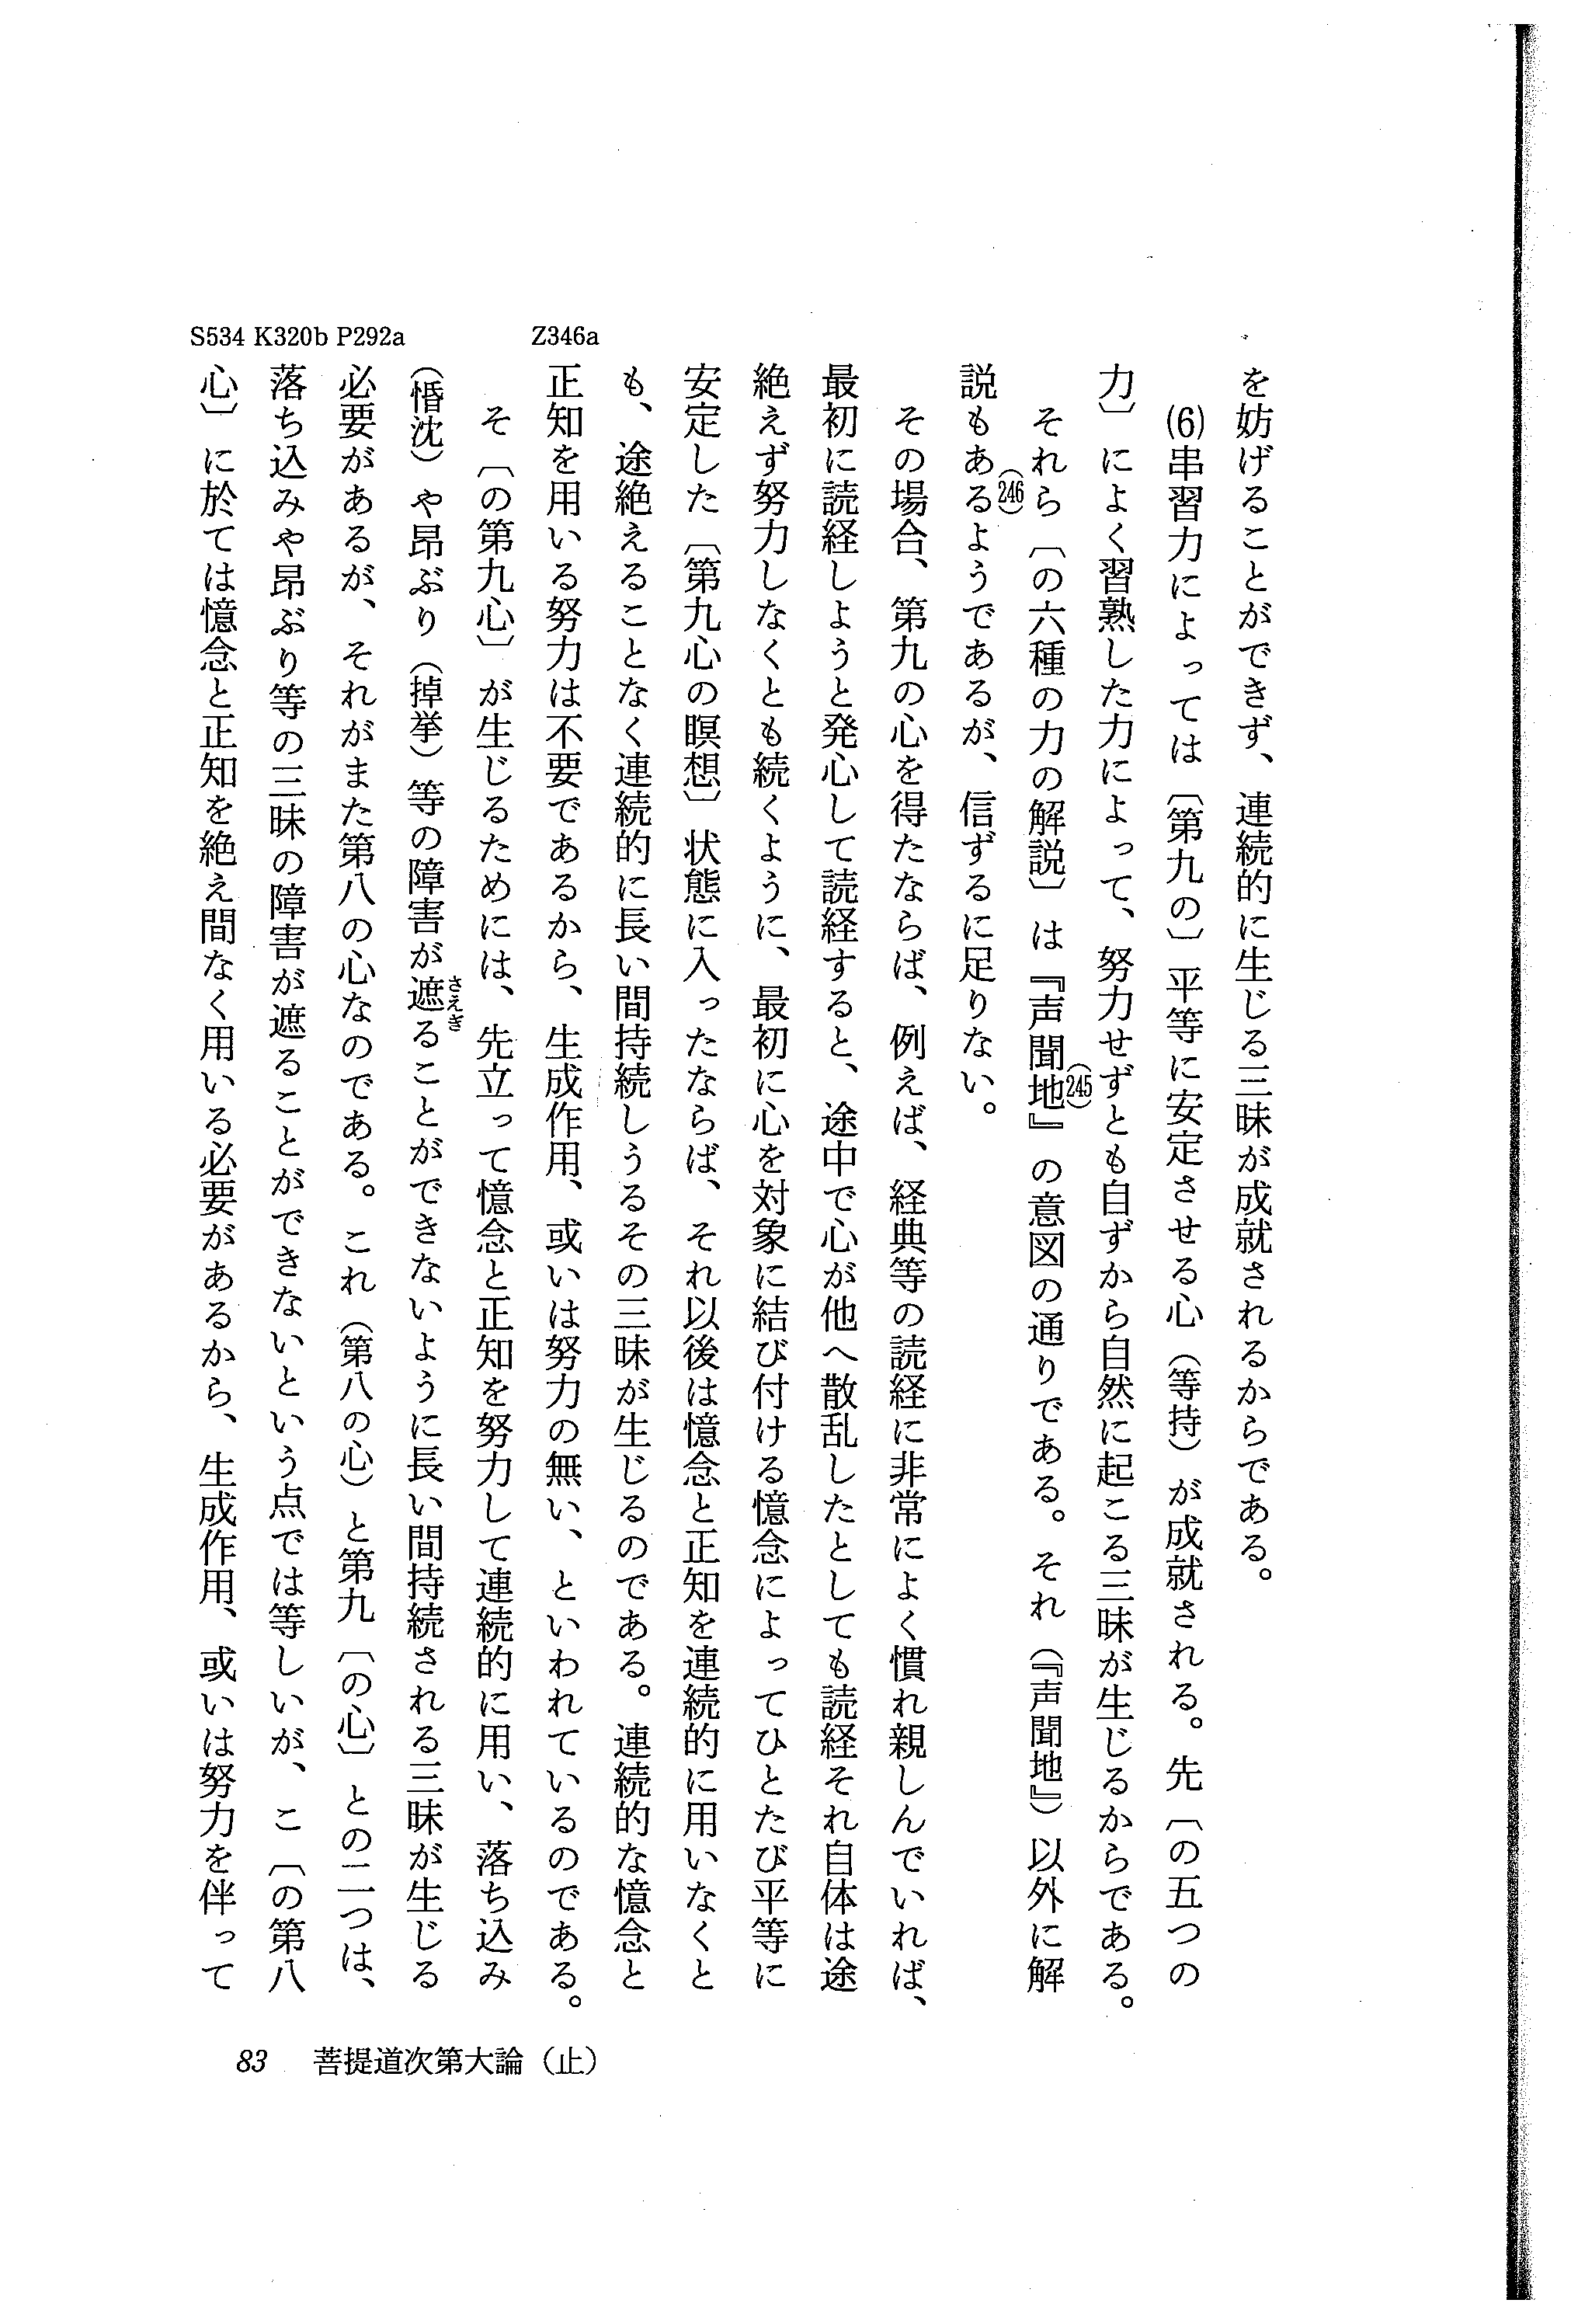 を妨げることができず、連続的に生じる三昧が成就されるからである。
(6)串習力によっては〔第九の〕平等に安定させる心（等持）が成就される。先〔の五つの
力〕によく習熟した力によって、努力せずとも自ずから自然に起こる三昧が生じるからである。
それら〔の六種の力の解説〕は『声聞地』(245)の意図の通りである。それ（『声聞地』）以外に解
説もある(246)ようであるが、信ずるに足りない。
その場合、第九の心を得たならば、例えば、経典等の読経に非常によく慣れ親しんでいれば、
最初に読経しようと発心して読経すると、途中で心が他へ散乱したとしても読経それ自体は途
絶えず努力しなくとも続くように、最初に心を対象に結び付ける憶念によってひとたび平等に
安定した〔第九心の瞑想〕状態に入ったならば、それ以後は憶念と正知を連続的に用いなくと
も、途絶えることなく連続的に長い間持続しうるその三昧が生じるのである。連続的な憶念と
Z346a
正知を用いる努力は不要であるから、生成作用、或いは努力の無い、といわれているのである。
そ〔の第九心〕が生じるためには、先立って憶念と正知を努力して連続的に用い、落ち込み
（惛沈）や昂ぶり（掉挙）等の障害が遮さえぎることができないように長い間持続される三昧が生じる
必要があるが、それがまた第八の心なのである。これ（第八の心）と第九〔の心〕との二つは、
落ち込みや昂ぶり等の三昧の障害が遮ることができないという点では等しいが、こ〔の第八
S534 K320b P292a
心〕に於ては憶念と正知を絶え間なく用いる必要があるから、生成作用、或いは努力を伴って
83 菩提道次第大論（止）